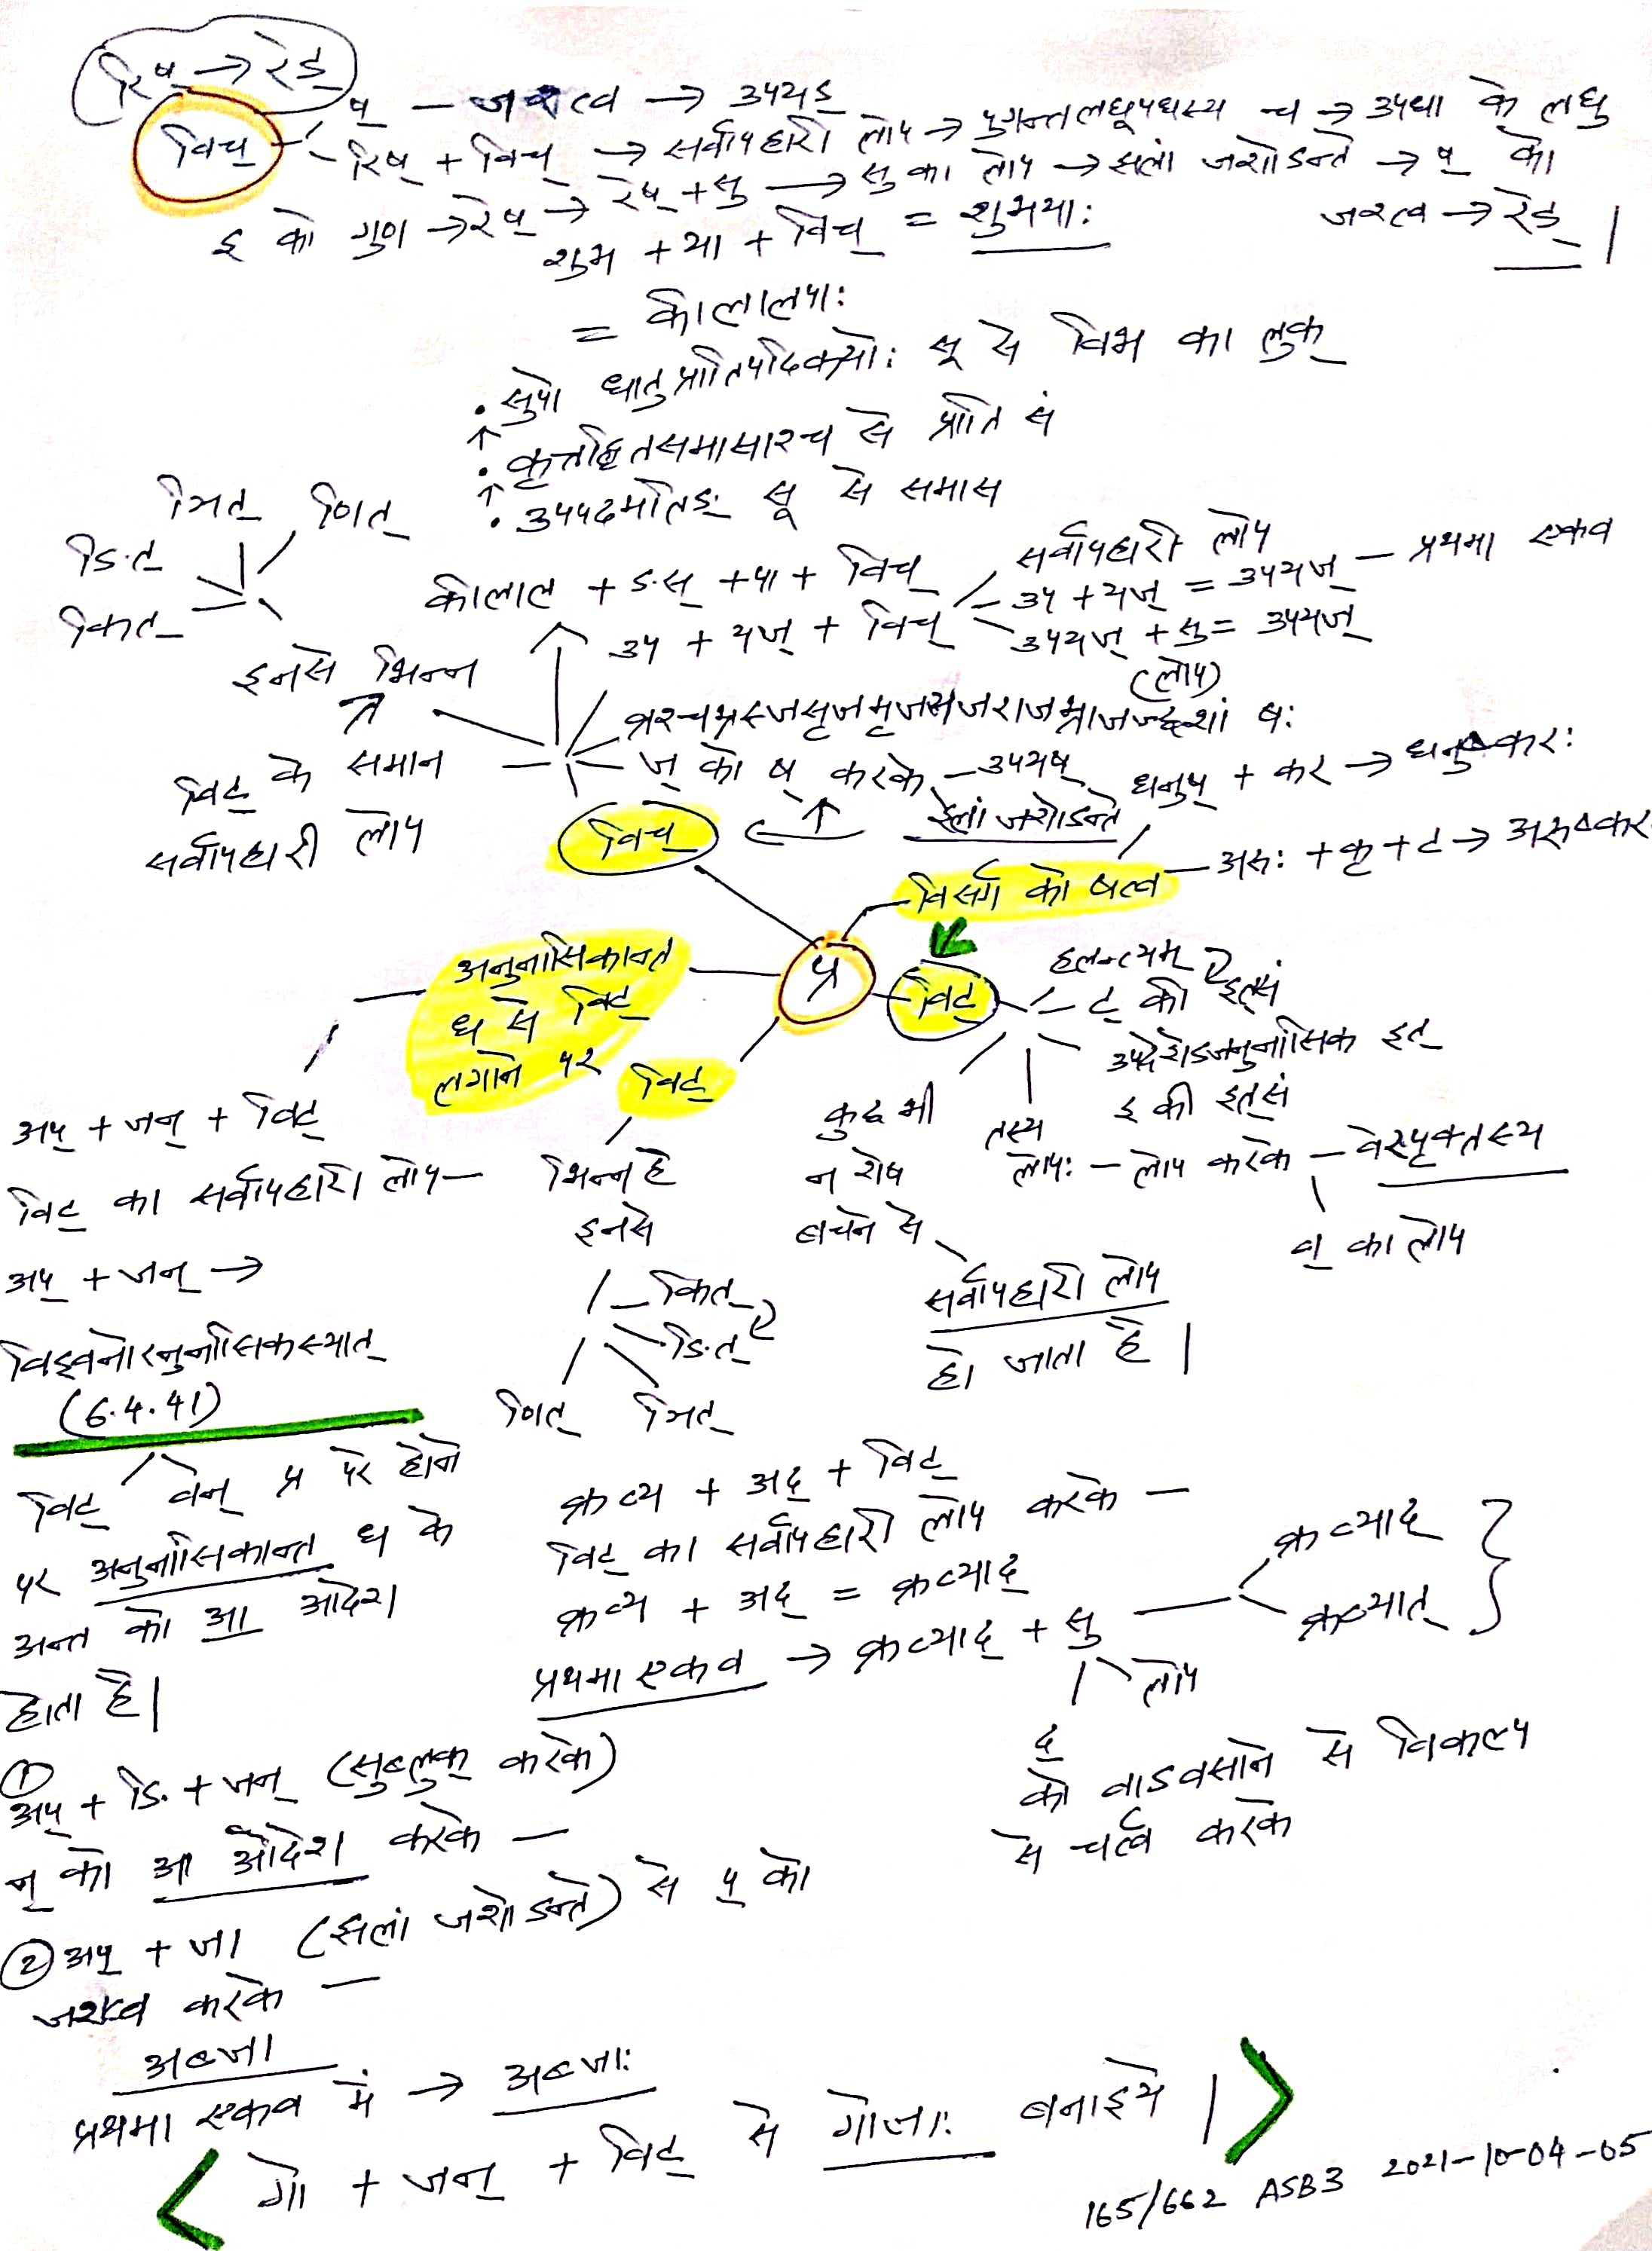 रिष् → रेड्
विच्
ष् — जश्त्व → उपयड्
रिष् + विच् → सर्वापहारी लोप → पुगन्तलघूपधस्य च → उपधा के लघु
इ को गुण → रेष् → रेष् + सु → सु का लोप → झलां जशोऽन्ते → ष् को
जश्त्व → रेड् |
शुभ + या + विच् = शुभयाः
= कीलालपाः
• सुपो धातुप्रातिपदिकयोः सू से विभ का लुक्
↑
• कृत्तद्धितसमासाश्च से प्राति सं
↑
• उपपदमतिङ् सू से समास
ञित् णित्
ङित्
कित्
इनसे भिन्न
कीलाल + ङस् + पा + विच्
उप + यज् + विच्
सर्वापहारी लोप
उप + यज् = उपयज् — प्रथमा एकव
उपयज् + सु = उपयज्
(लोप)
व्रश्चभ्रस्जसृजमृजयजराजभ्राजच्छशां षः
ज् को ष् करके — उपयष्
झलां जशोऽन्ते
विट् के समान
सर्वापहारी लोप
विच्
धनुष् + कर → धनुष्करः
विसर्ग को षत्व — अरुः + कृ + ट → अरुष्कर
प्र
अनुनासिकान्त
ध से विट्
लगाने पर
विट्
विट्
हलन्त्यम्
ट् की इत्सं
उपदेशेऽजनुनासिक इत्
इ की इत्सं
तस्य
लोपः — लोप करके — वेरपृक्तस्य
व् का लोप
कुछ भी
न शेष
बचने से
सर्वापहारी लोप
हो जाता है |
भिन्न है
इनसे
कित्
ङित्
णित् ञित्
अप् + जन् + विट्
विट् का सर्वापहारी लोप —
अप् + जन् →
विड्वनोरनुनासिकस्यात्
(6.4.41)
विट् वन् प्र परे होने
पर अनुनासिकान्त ध के
अन्त को आ आदेश
होता है |
क्रव्य + अद् + विट्
विट् का सर्वापहारी लोप करके —
क्रव्य + अद् = क्रव्याद्
प्रथमा एकव → क्रव्याद् + सु
क्रव्याद्
क्रव्यात्
लोप
द्
को वाऽवसाने से विकल्प
से चर्त्व करके
① अप् + ङि + जन् (सुब्लुक् करके)
न् को आ आदेश करके —
② अप् + जा (झलां जशोऽन्ते) से प् को
जश्त्व करके —
अब्जा
प्रथमा एकव में → अब्जाः
< गो + जन् + विट् से गोजाः बनाइये | >
165/662 ASB3 2021-10-04-05